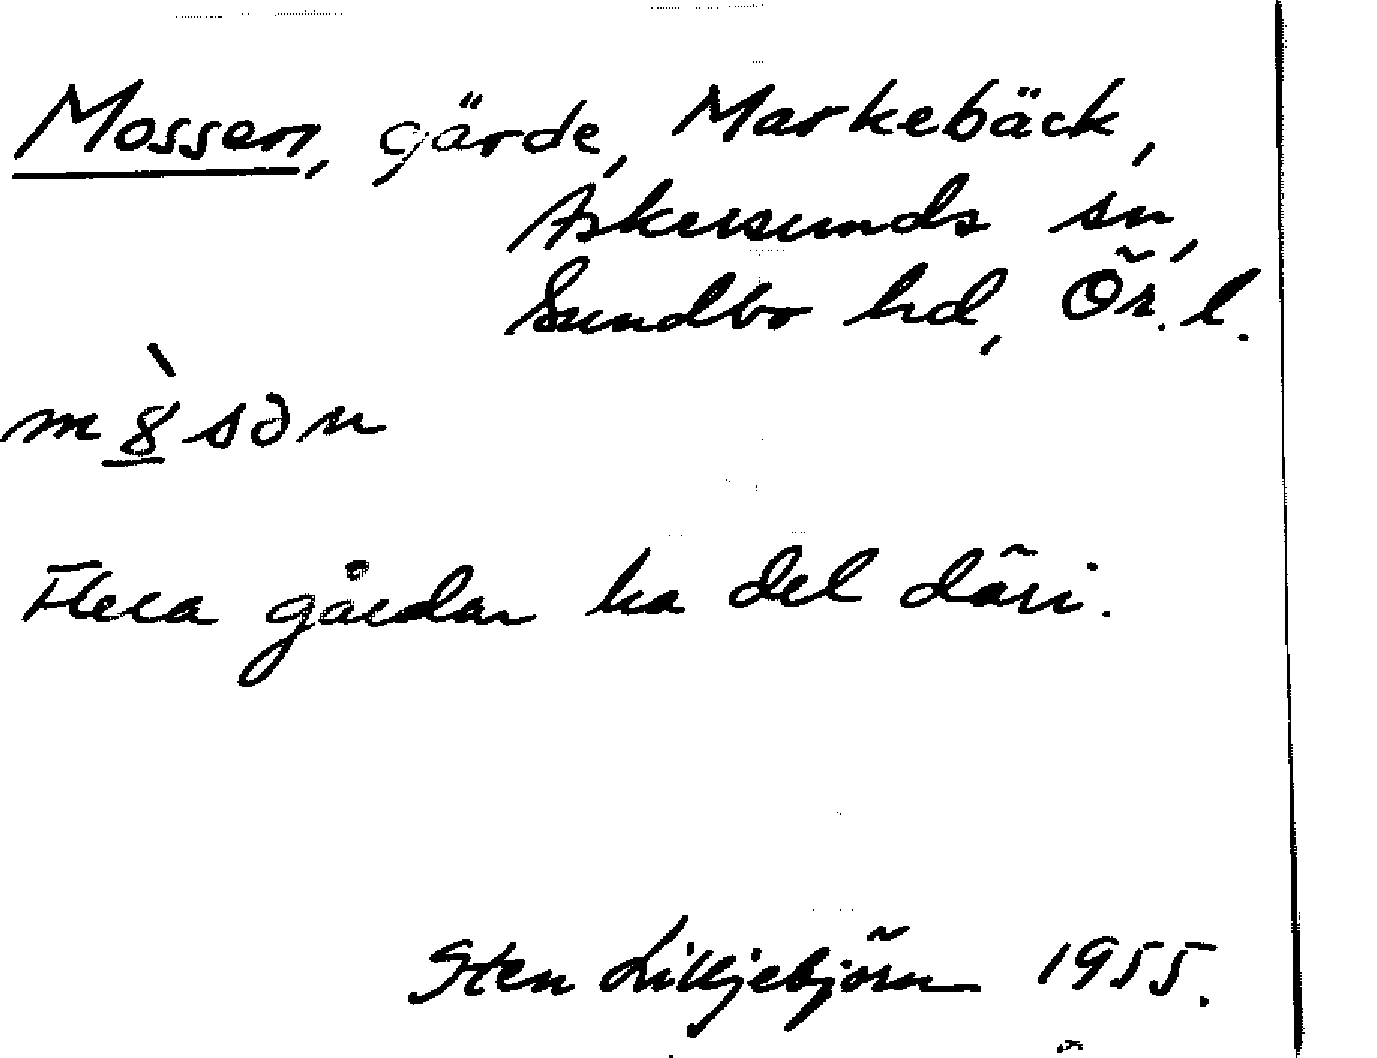 Mossen, gärde, Markebäck,
Askersunds sn,
Sundbo hd, Ör. l.
m8̲̀sən
Flera gårdar ha del däri.
Sten Lilljebjörn 1955.